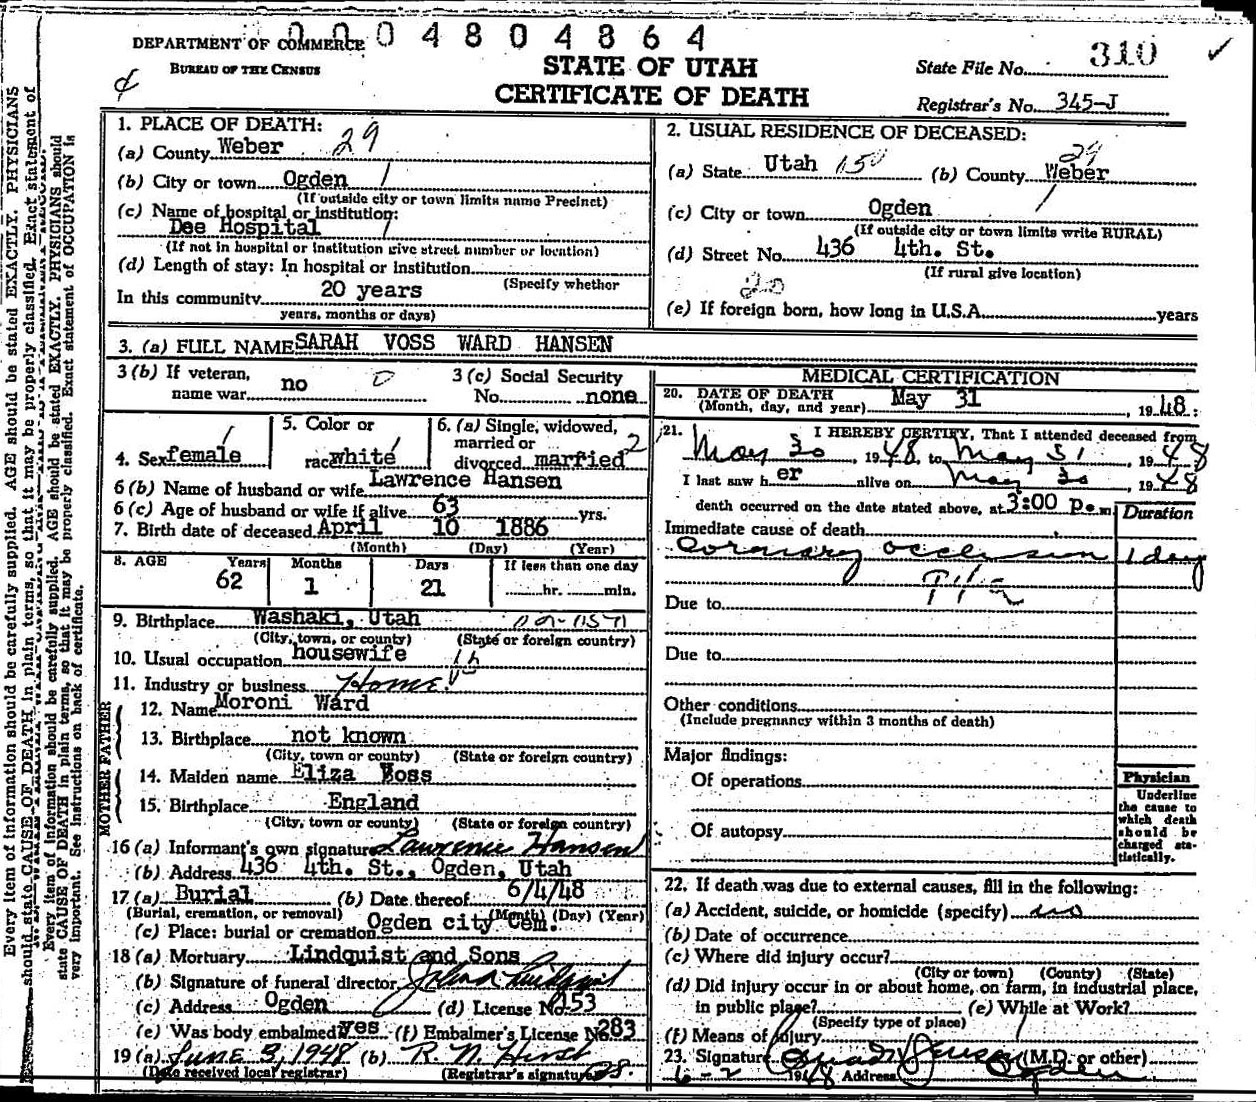 0004804864
DEPARTMENT OF COMMERCE
BUREAU OF THE CENSUS
STATE OF UTAH
CERTIFICATE OF DEATH
State File No. 310
Registrar's No. 345-J
Every item of information should be carefully supplied. AGE should be stated EXACTLY. PHYSICIANS
should state CAUSE OF DEATH in plain terms, so that it may be properly classified. Exact statement of
Every item of information should be carefully supplied. AGE should be stated EXACTLY. PHYSICIANS should
state CAUSE OF DEATH in plain terms, so that it may be properly classified. Exact statement of OCCUPATION is
very important. See instructions on back of certificate.
1. PLACE OF DEATH: 29
(a) County Weber
(b) City or town Ogden
(If outside city or town limits name Precinct)
(c) Name of hospital or institution:
Dee Hospital
(If not in hospital or institution give street number or location)
(d) Length of stay: In hospital or institution
(Specify whether
In this community 20 years
years, months or days)
2. USUAL RESIDENCE OF DECEASED:
(a) State Utah 150 (b) County Weber 29
(c) City or town Ogden
(If outside city or town limits write RURAL)
(d) Street No. 436 4th. St.
(If rural give location)
20
(e) If foreign born, how long in U.S.A. years
3. (a) FULL NAME SARAH VOSS WARD HANSEN
3 (b) If veteran, name war no 0
3 (c) Social Security No. none
4. Sex female
5. Color or race white
6. (a) Single, widowed, married or divorced married 2
6 (b) Name of husband or wife Lawrence Hansen
6 (c) Age of husband or wife if alive 63 yrs.
7. Birth date of deceased April 10 1886
(Month) (Day) (Year)
8. AGE Years Months Days If less than one day
62 1 21 hr. min.
9. Birthplace Washaki, Utah
(City, town, or county) (State or foreign country)
10. Usual occupation housewife
11. Industry or business Home
FATHER
12. Name Moroni Ward
13. Birthplace not known
(City, town or county) (State or foreign country)
MOTHER
14. Maiden name Eliza Voss
15. Birthplace England
(City, town or county) (State or foreign country)
16 (a) Informant's own signature Lawrence Hansen
(b) Address 436 4th. St., Ogden, Utah
17 (a) Burial (b) Date thereof 6/4/48
(Burial, cremation, or removal) (Month) (Day) (Year)
(c) Place: burial or cremation Ogden city Cem.
18 (a) Mortuary Lindquist and Sons
(b) Signature of funeral director John A Lindquist
(c) Address Ogden (d) License No. 153
(e) Was body embalmed yes (f) Embalmer's License No. 283
19 (a) June 3, 1948 (b) R. N. Hirst
(Date received local registrar) (Registrar's signature)
MEDICAL CERTIFICATION
20. DATE OF DEATH
(Month, day, and year) May 31, 1948
21. I HEREBY CERTIFY, That I attended deceased from
May 30, 1948, to May 31, 1948
I last saw her alive on May 30 1948
death occurred on the date stated above, at 3:00 p.m
Duration
Immediate cause of death
Coronary occlusion 1 day
Due to
Due to
Other conditions
(Include pregnancy within 3 months of death)
Major findings:
Of operations
Of autopsy
Physician
Underline
the cause to
which death
should be
charged sta-
tistically.
22. If death was due to external causes, fill in the following:
(a) Accident, suicide, or homicide (specify) no
(b) Date of occurrence
(c) Where did injury occur?
(City or town) (County) (State)
(d) Did injury occur in or about home, on farm, in industrial place,
in public place? (e) While at Work?
(Specify type of place)
(f) Means of injury
23. Signature (M.D. or other)
6-2 1948 Address Ogden